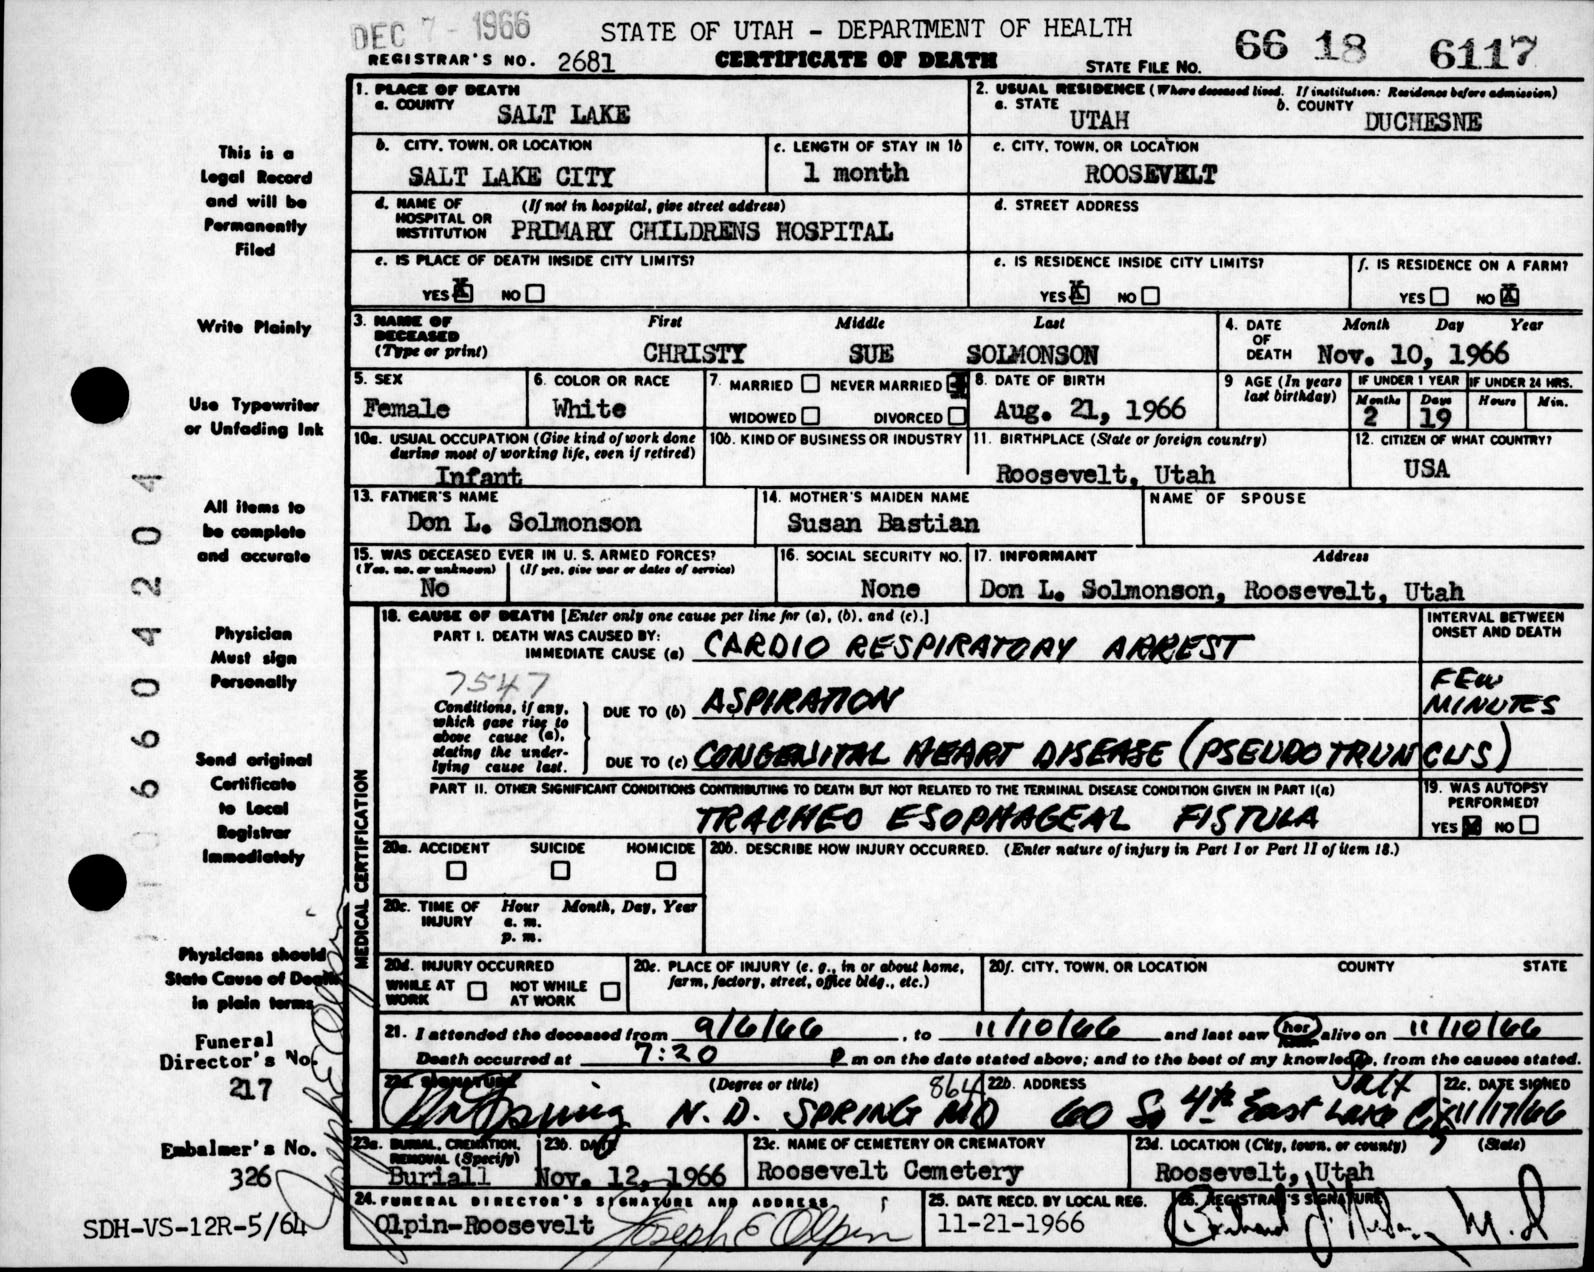 DEC 7 - 1966
STATE OF UTAH - DEPARTMENT OF HEALTH
66 18 6117
REGISTRAR'S NO. 2681
CERTIFICATE OF DEATH
STATE FILE NO.
This is a
Legal Record
and will be
Permanently
Filed
Write Plainly
Use Typewriter
or Unfading Ink
All items to
be complete
and accurate
Physician
Must sign
Personally
Send original
Certificate
to Local
Registrar
Immediately
Physicians should
State Cause of Death
in plain terms
Funeral
Director's No.
217
Embalmer's No.
326
SDH-VS-12R-5/64
10660 4204
Joseph E Olpin
1. PLACE OF DEATH
a. COUNTY
SALT LAKE
2. USUAL RESIDENCE (Where deceased lived. If institution: Residence before admission)
a. STATE b. COUNTY
UTAH DUCHESNE
b. CITY, TOWN, OR LOCATION
SALT LAKE CITY
c. LENGTH OF STAY IN 1b
1 month
c. CITY, TOWN, OR LOCATION
ROOSEVELT
d. NAME OF (If not in hospital, give street address)
HOSPITAL OR
INSTITUTION PRIMARY CHILDRENS HOSPITAL
d. STREET ADDRESS
e. IS PLACE OF DEATH INSIDE CITY LIMITS?
YES X NO
e. IS RESIDENCE INSIDE CITY LIMITS?
YES X NO
f. IS RESIDENCE ON A FARM?
YES NO X
3. NAME OF First Middle Last
DECEASED
(Type or print) CHRISTY SUE SOLMONSON
4. DATE Month Day Year
OF
DEATH Nov. 10, 1966
5. SEX
Female
6. COLOR OR RACE
White
7. MARRIED NEVER MARRIED X
WIDOWED DIVORCED
8. DATE OF BIRTH
Aug. 21, 1966
9 AGE (In years
last birthday)
IF UNDER 1 YEAR IF UNDER 24 HRS.
Months Days Hours Min.
2 19
10a. USUAL OCCUPATION (Give kind of work done
during most of working life, even if retired)
Infant
10b. KIND OF BUSINESS OR INDUSTRY
11. BIRTHPLACE (State or foreign country)
Roosevelt, Utah
12. CITIZEN OF WHAT COUNTRY?
USA
13. FATHER'S NAME
Don L. Solmonson
14. MOTHER'S MAIDEN NAME
Susan Bastian
NAME OF SPOUSE
15. WAS DECEASED EVER IN U. S. ARMED FORCES?
(Yes, no, or unknown) (If yes, give war or dates of service)
No
16. SOCIAL SECURITY NO.
None
17. INFORMANT Address
Don L. Solmonson, Roosevelt, Utah
MEDICAL CERTIFICATION
18. CAUSE OF DEATH [Enter only one cause per line for (a), (b), and (c).]
INTERVAL BETWEEN
ONSET AND DEATH
PART I. DEATH WAS CAUSED BY:
IMMEDIATE CAUSE (a) CARDIO RESPIRATORY ARREST
7547
Conditions, if any,
which gave rise to
above cause (a),
stating the under-
lying cause last.
DUE TO (b) ASPIRATION
FEW
MINUTES
DUE TO (c) CONGENITAL HEART DISEASE (PSEUDOTRUNCUS)
PART II. OTHER SIGNIFICANT CONDITIONS CONTRIBUTING TO DEATH BUT NOT RELATED TO THE TERMINAL DISEASE CONDITION GIVEN IN PART I(a)
TRACHEO ESOPHAGEAL FISTULA
19. WAS AUTOPSY
PERFORMED?
YES X NO
20a. ACCIDENT SUICIDE HOMICIDE
20b. DESCRIBE HOW INJURY OCCURRED. (Enter nature of injury in Part I or Part II of item 18.)
20c. TIME OF Hour Month, Day, Year
INJURY a. m.
p. m.
20d. INJURY OCCURRED
WHILE AT NOT WHILE
WORK AT WORK
20e. PLACE OF INJURY (e. g., in or about home,
farm, factory, street, office bldg., etc.)
20f. CITY, TOWN, OR LOCATION COUNTY STATE
21. I attended the deceased from 9/6/66, to 11/10/66 and last saw her alive on 11/10/66
Death occurred at 7:20 p m on the date stated above; and to the best of my knowledge, from the causes stated.
22a. SIGNATURE (Degree or title) 864
N. D. SPRING MD
22b. ADDRESS
60 So 4th East Salt Lake City
22c. DATE SIGNED
11/17/66
23a. BURIAL, CREMATION,
REMOVAL (Specify)
Buriall
23b. DATE
Nov. 12, 1966
23c. NAME OF CEMETERY OR CREMATORY
Roosevelt Cemetery
23d. LOCATION (City, town, or county) (State)
Roosevelt, Utah
24. FUNERAL DIRECTOR'S SIGNATURE AND ADDRESS
Olpin-Roosevelt Joseph E Olpin
25. DATE RECD. BY LOCAL REG.
11-21-1966
26. REGISTRAR'S SIGNATURE
M.D